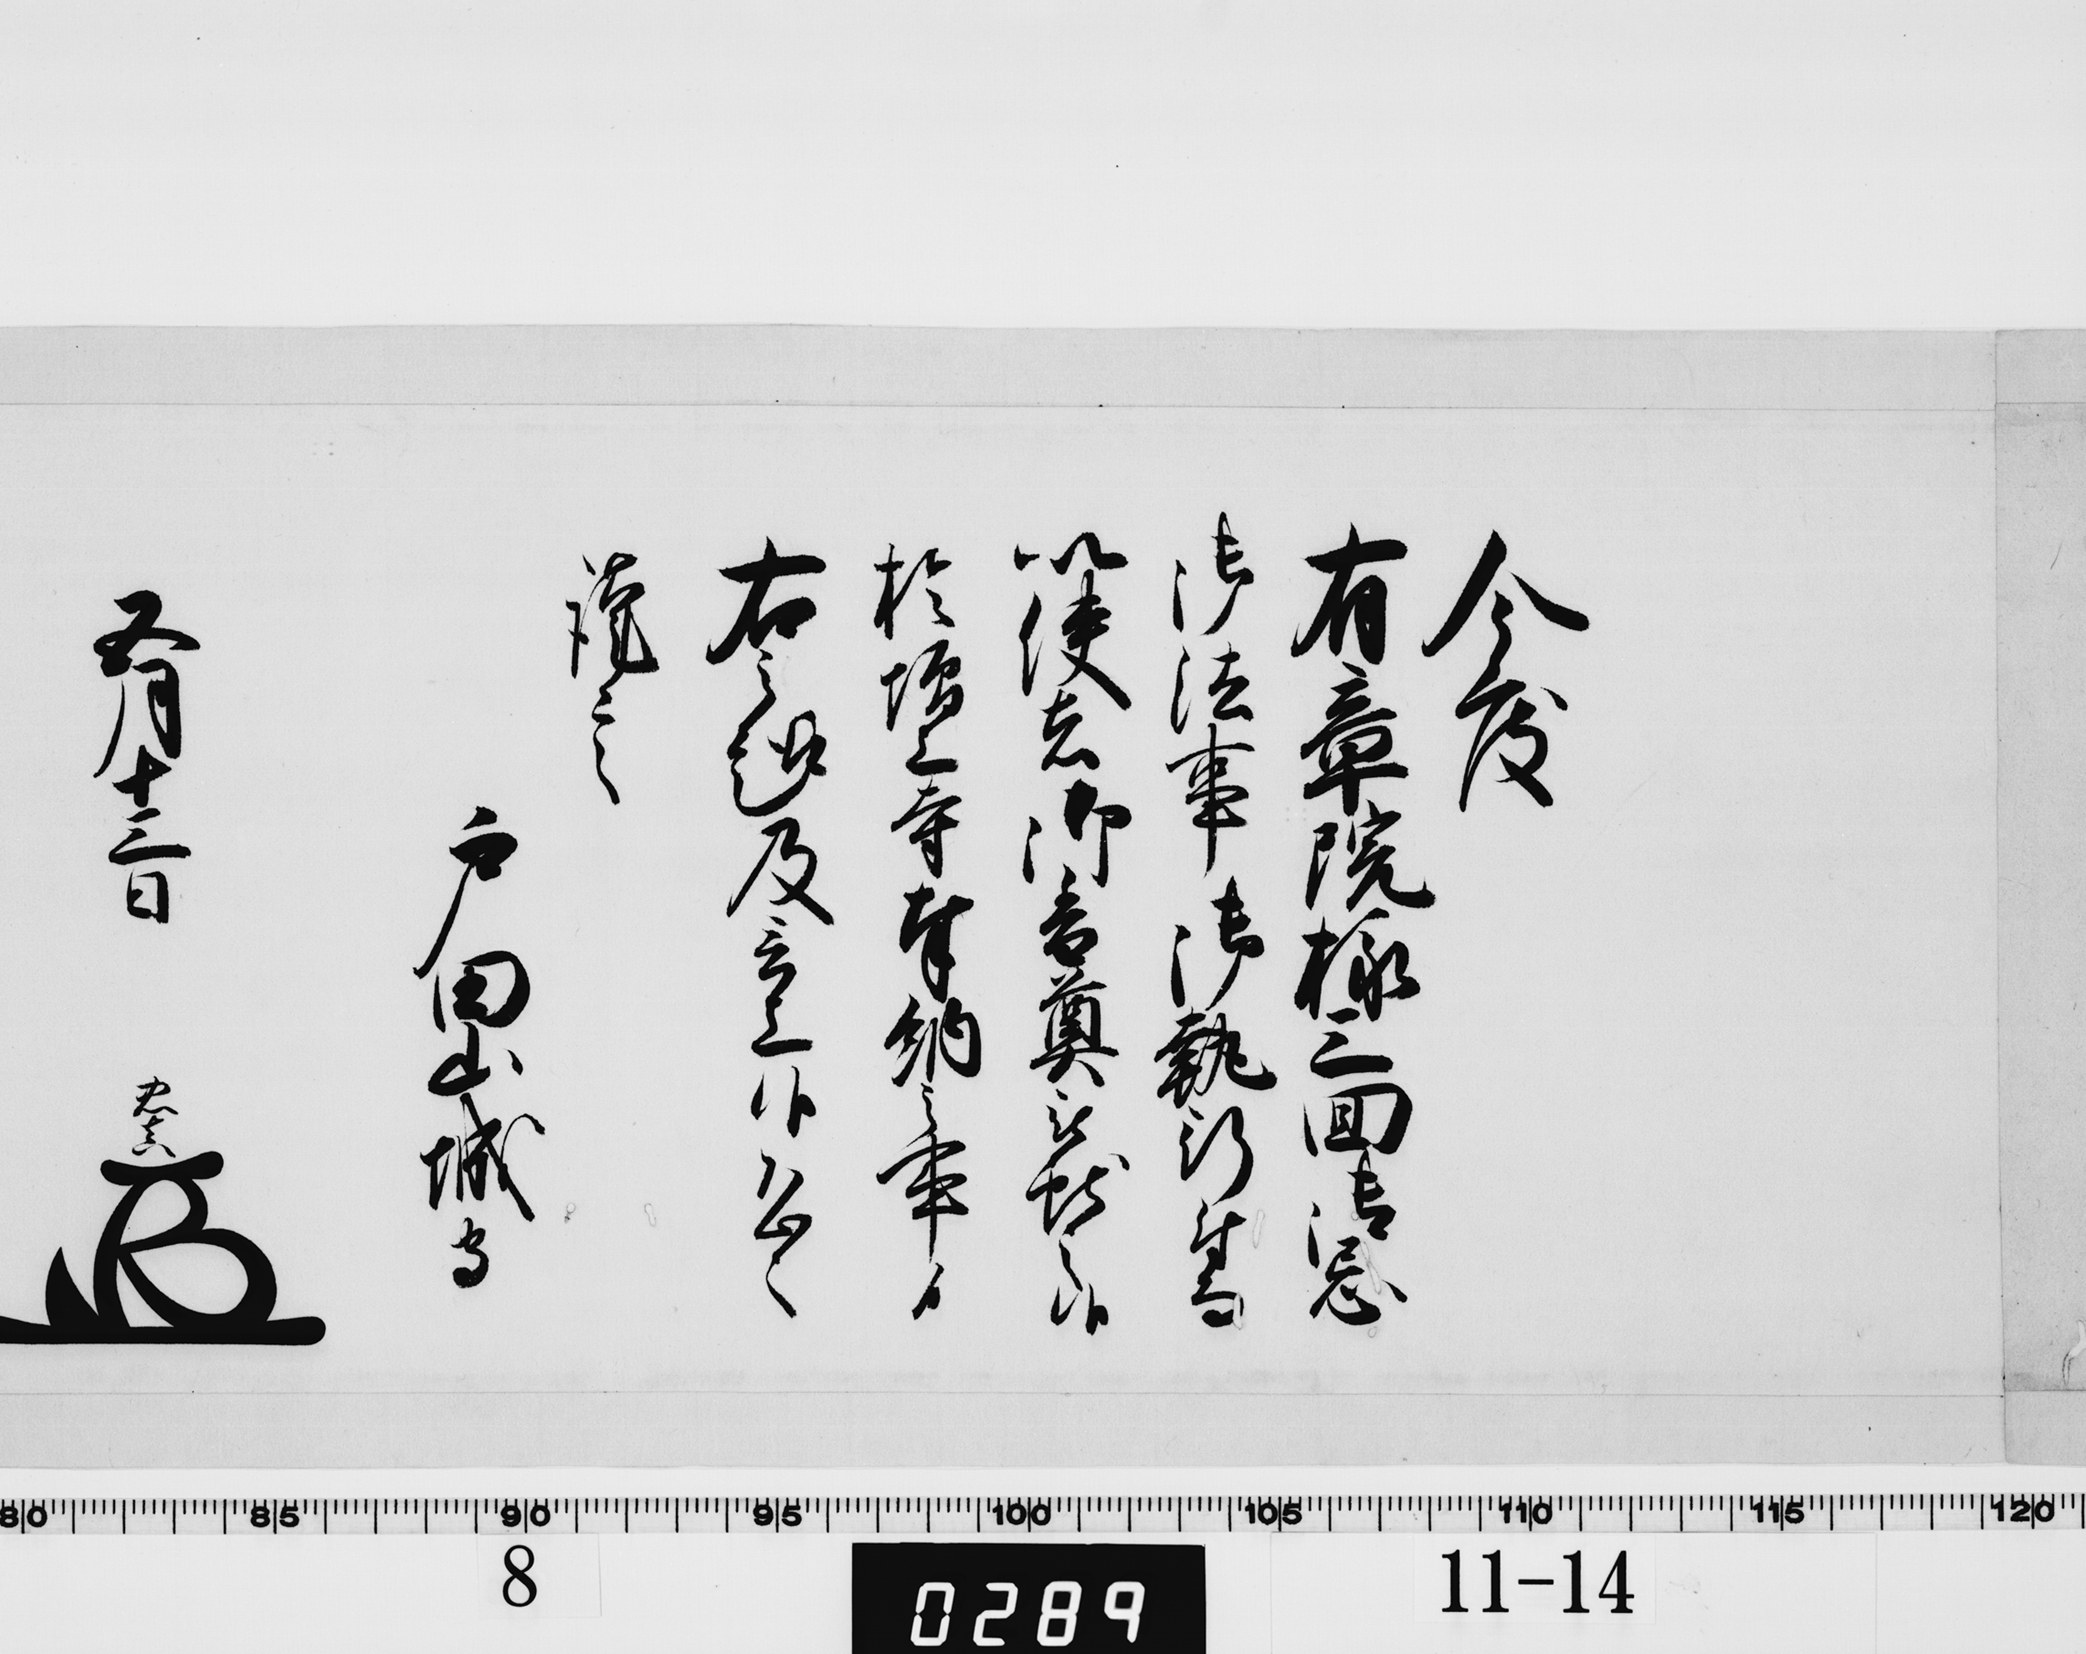 今度
有章院様三回御忌
御法事御執行付而
以使者御香奠被献之作
於増上寺奉納之事候
右之趣及言上候恐々
謹言
戸田山城守
五月十三日
忠真
80 85 90 95 100 105 110 115 120
8
0289
11-14